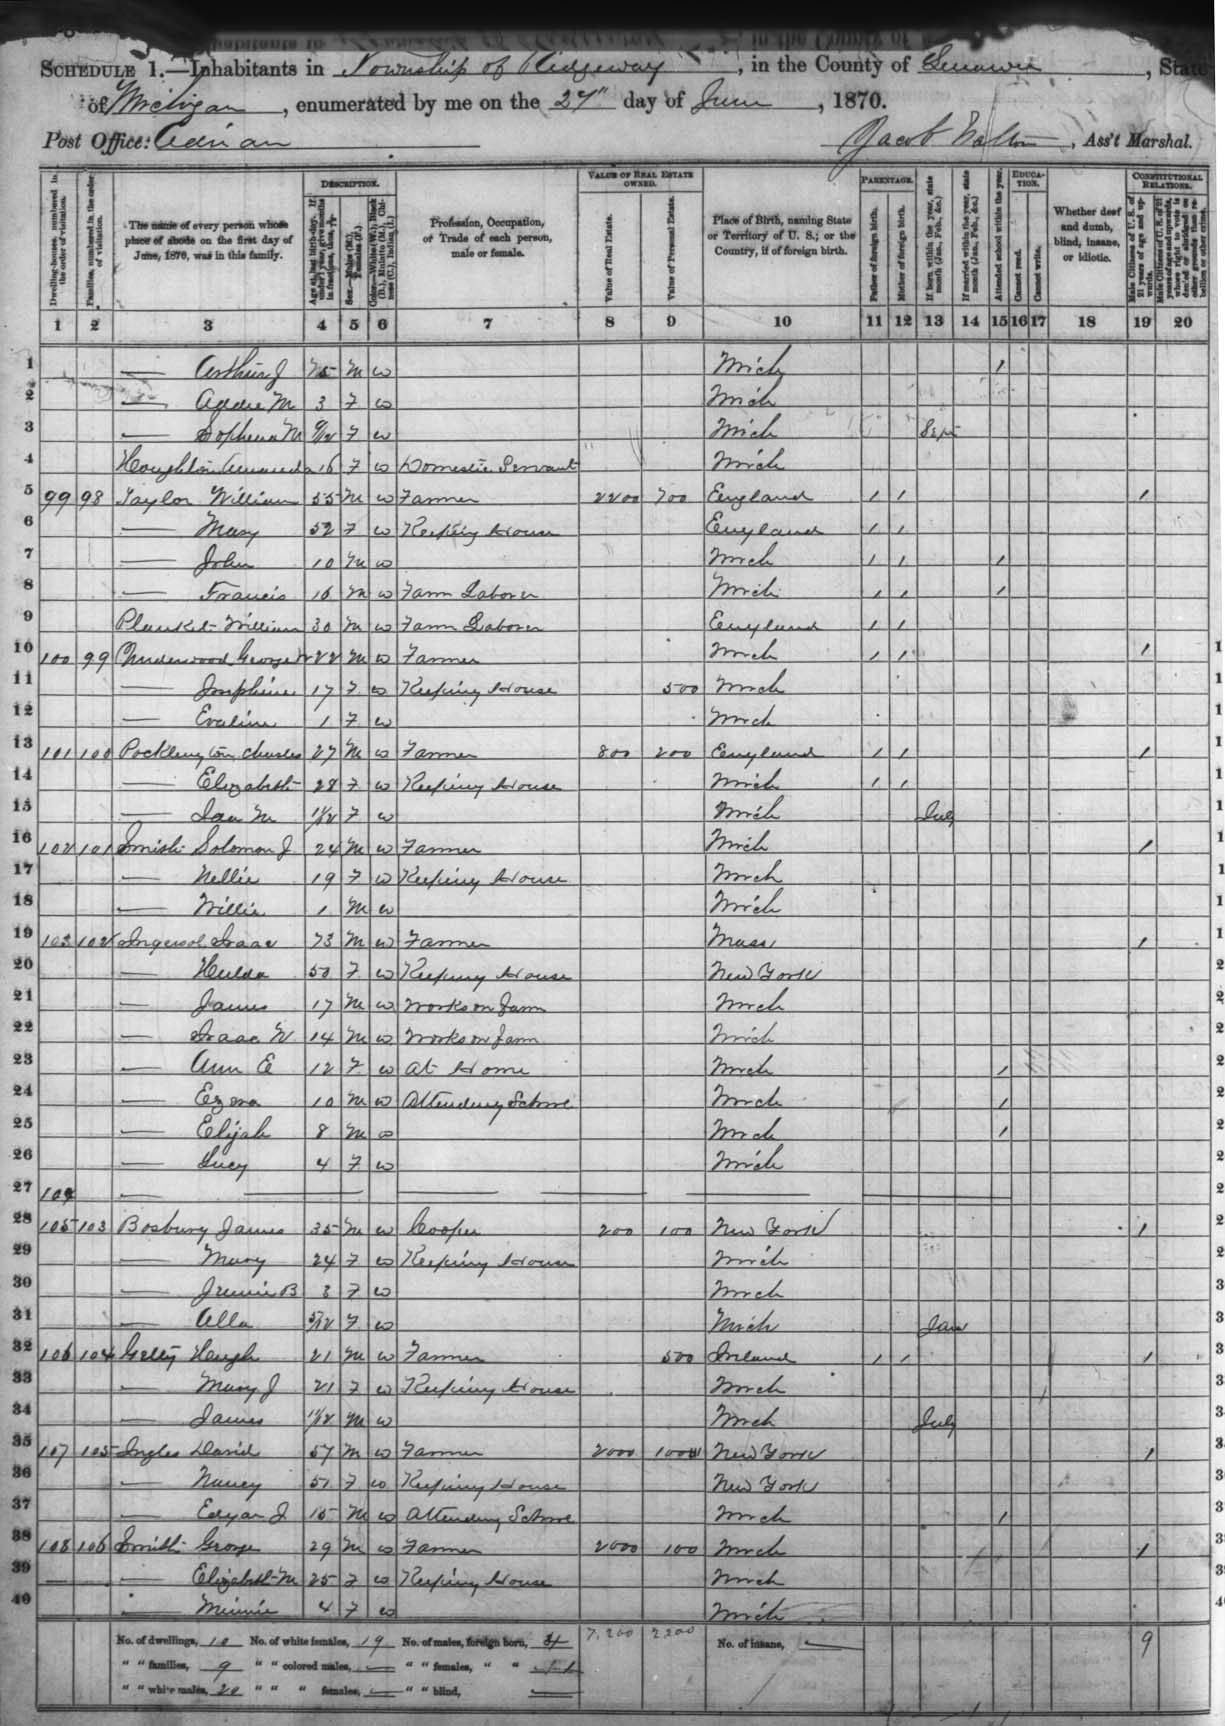 SCHEDULE 1.—Inhabitants in Township of Ridgeway, in the County of Lenawee, State
of Michigan, enumerated by me on the 24" day of June, 1870.
Post Office: Adrian Jacob Walton, Ass't Marshal.
DESCRIPTION. VALUE OF REAL ESTATE OWNED. PARENTAGE. EDUCATION. CONSTITUTIONAL RELATIONS.
Dwelling-houses, numbered in the order of visitation.
Families, numbered in the order of visitation.
The name of every person whose place of abode on the first day of June, 1870, was in this family.
Profession, Occupation, or Trade of each person, male or female.
Value of Real Estate.
Value of Personal Estate.
Place of Birth, naming State or Territory of U. S.; or the Country, if of foreign birth.
Father of foreign birth.
Mother of foreign birth.
If born within the year, state month (Jan., Feb., &c.)
If married within the year, state month (Jan., Feb., &c.)
Attended school within the year.
Cannot read.
Cannot write.
Whether deaf and dumb, blind, insane, or idiotic.
1 2 3 4 5 6 7 8 9 10 11 12 13 14 15 16 17 18 19 20
1 — Arthur J M W Mich /
2 — Addie M 3 F W Mich
3 — M 9/12 F W Mich Sept
4 Houghton Amanda 16 F W Domestic Servant Mich
5 99 98 Taylor William 55 M W Farmer 2200 700 England / / /
6 — Mary 52 F W Keeping House England / /
7 — John 10 M W Mich / / /
8 — Francis 16 M W Farm Laborer Mich / / /
9 Plunket William 30 M W Farm Laborer England / /
10 100 99 Underwood George W 22 M W Farmer Mich / / /
11 — Josephine 17 F W Keeping House 500 Mich
12 — Evaline 1 F W Mich
13 101 100 Pocklington Charles 27 M W Farmer 800 200 England / / /
14 — Elizabeth 28 F W Keeping House Mich / /
15 — Ida M 11/12 F W Mich July
16 102 101 Smith Solomon J 24 M W Farmer Mich /
17 — Nellie 19 F W Keeping House Mich
18 — Willie 1 M W Mich
19 103 102 Ingersol Isaac 73 M W Farmer Mass /
20 — Hulda 50 F W Keeping House New York
21 — James 17 M W Works on farm Mich
22 — Isaac W 14 M W Works on farm Mich
23 — Ann E 12 F W At Home Mich /
24 — Ezra 10 M W Attending School Mich /
25 — Elijah 8 M W Mich /
26 — Lucy 4 F W Mich
27 104 — — — — — —
28 105 103 Bosbury James 35 M W Cooper 200 100 New York /
29 — Mary 24 F W Keeping House Mich
30 — Jennie B 3 F W Mich
31 — Alla 5/12 F W Mich Jan
32 106 104 Getty Hough 21 M W Farmer 500 Ireland / / /
33 — Mary J 21 F W Keeping House Mich
34 — James 11/12 M W Mich July
35 107 105 Ingles David 57 M W Farmer 2000 1000 New York /
36 — Nancy 51 F W Keeping House New York
37 — Edgar J 15 M W Attending School Mich /
38 108 106 Smith George 29 M W Farmer 2000 100 Mich /
39 — Elizabeth M 25 F W Keeping House Mich
40 — Minnie 4 F W Mich
No. of dwellings, 10 No. of white females, 19 No. of males, foreign born, 4 7,200 2200 No. of insane, — 9
" " families, 9 " " colored males, — " " females, " "
" " white males, 20 " " " females, — " " blind, —